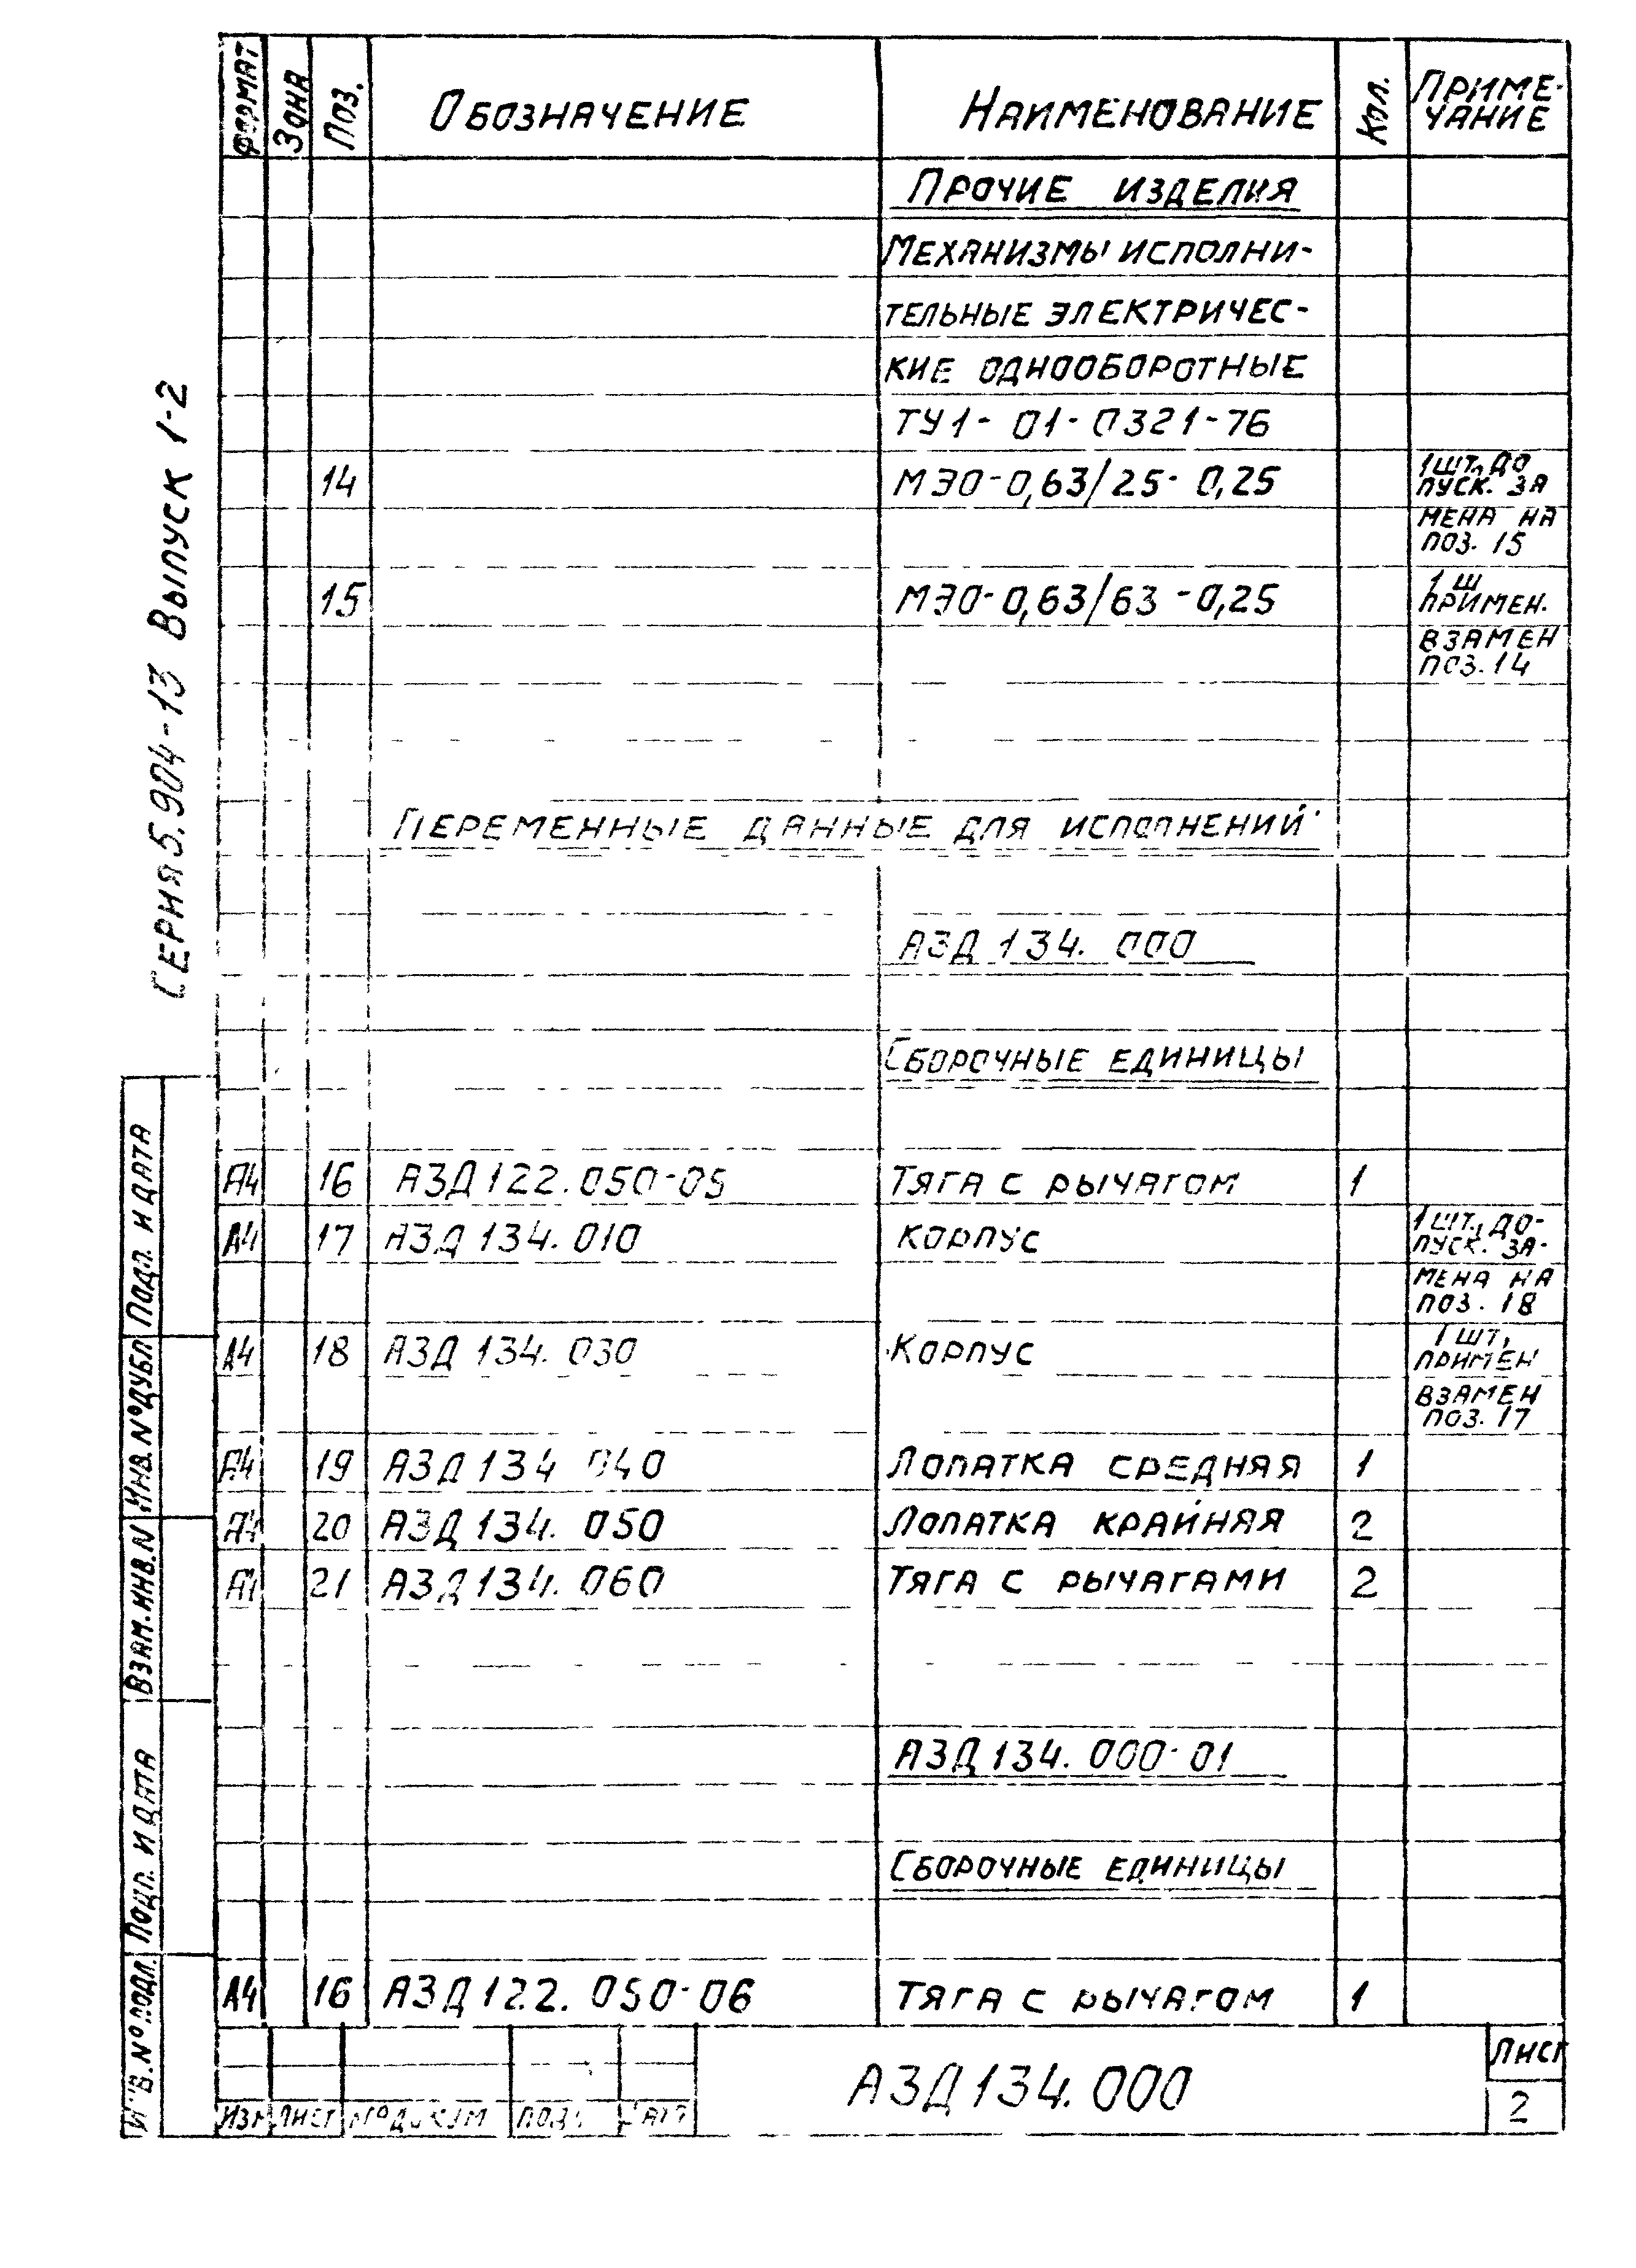 ФОРМАТ ЗОНА ПОЗ. ОБОЗНАЧЕНИЕ НАИМЕНОВАНИЕ КОЛ. ПРИМЕ-
ЧАНИЕ
ПРОЧИЕ ИЗДЕЛИЯ
МЕХАНИЗМЫ ИСПОЛНИ-
ТЕЛЬНЫЕ ЭЛЕКТРИЧЕС-
КИЕ ОДНООБОРОТНЫЕ
ТУ1-01-0321-76
14 МЭО-0,63/25-0,25 1 ШТ., ДО
ПУСК. ЗА
МЕНА НА
ПОЗ. 15
15 МЭО-0,63/63-0,25 1 Ш
ПРИМЕН.
ВЗАМЕН
ПОЗ. 14
ПЕРЕМЕННЫЕ ДАННЫЕ ДЛЯ ИСПОЛНЕНИЙ
АЗД 134.000
СБОРОЧНЫЕ ЕДИНИЦЫ
А4 16 АЗД 122.050-05 ТЯГА С РЫЧАГОМ 1
А4 17 АЗД 134.010 КОРПУС 1 ШТ., ДО-
ПУСК. ЗА-
МЕНА НА
ПОЗ. 18
А4 18 АЗД 134.030 КОРПУС 1 ШТ,
ПРИМЕН
ВЗАМЕН
ПОЗ. 17
А4 19 АЗД 134 040 ЛОПАТКА СРЕДНЯЯ 1
А4 20 АЗД 134.050 ЛОПАТКА КРАЙНЯЯ 2
21 АЗД 134.060 ТЯГА С РЫЧАГАМИ 2
АЗД 134.000-01
СБОРОЧНЫЕ ЕДИНИЦЫ
А4 16 АЗД 122.050-06 ТЯГА С РЫЧАГОМ 1
АЗД 134.000
ЛИСТ
2
ИЗМ ЛИСТ № ДОКУМ
СЕРИЯ 5.904-13 ВЫПУСК 1-2
ПОДП. И ДАТА
ИНВ. № ДУБЛ
ВЗАМ. ИНВ. N
ПОДП. И ДАТА
ИНВ. № ПОДЛ.